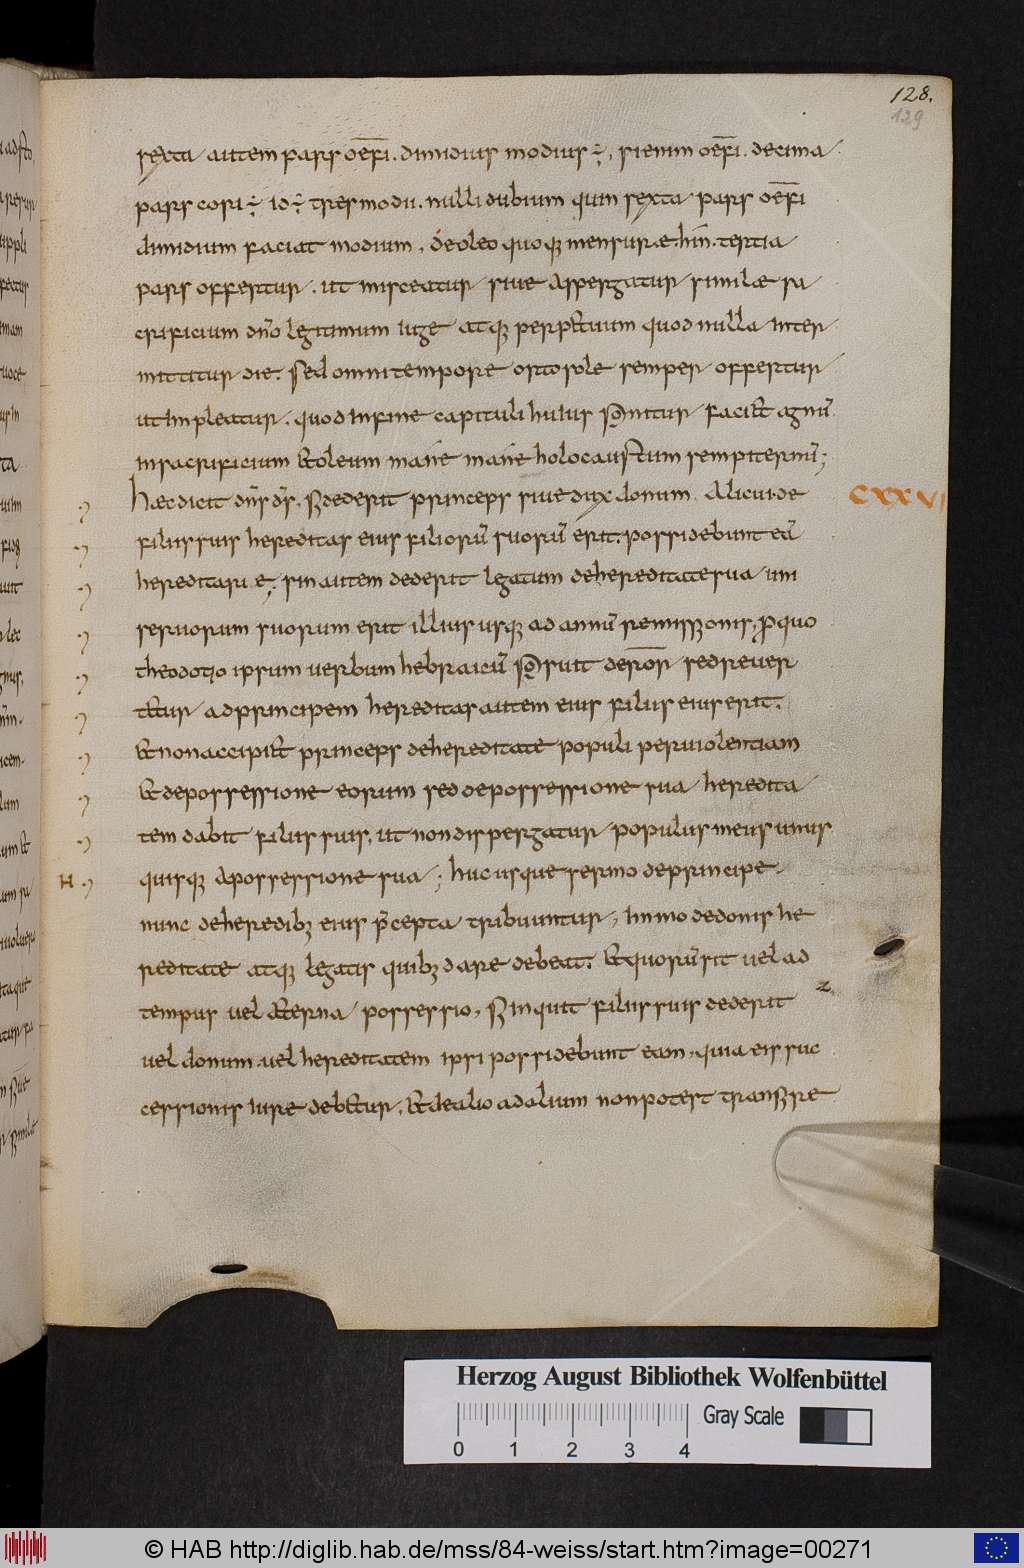 128.
129
sexta autem pars oefi. dimidius modius ÷, si enim oefi. decima
pars cori ÷ id ÷ tres modii. nulli dubium quin sexta pars oefi
dimidium faciat modium, de oleo quoq; mensuræ. hin. tertia
pars offertur. ut misceatur sive aspergatur similæ sa
crificium dn̄o legitimum iuge atq; perp&uum quod nulla inter
mittitur die. sed omni tempore orto sole semper offertur
ut impleatur. quod in fine capituli huius
faci& agnū
in sacrificium & oleum mane mane holocaustum sempiternū;
Hæc dicit dn̄s ds̄. Si dederit princeps sive dux donum. Alicui. de
CXXVI
filiis suis hereditas eius filiorū suorū erit. possidebunt eā
hereditarie; sin autem dederit legatum de hereditate sua uni
servorum suorum erit illius usq; ad annū remissionis, pro quo
theodotio ipsum verbum hebraicū
deror sed rever
t&ur ad principem hereditas autem eius filiis eius erit.
& non accipi& princeps de hereditate populi per violentiam
& de possessione eorum sed de possessione sua heredita
tem dabit filiis suis. ut non dispergatur populus meus unus
quisq; a possessione sua; huc usque sermo de principe.
nunc de heredib; eius p̄cepta tribuuntur, immo de donis he
reditate atq; legatis quib; dare debeat. & quorū sit vel ad
tempus vel &erna possessio, Si inquit filiis suis dederit
z
vel donum. vel hereditatem ipsi possidebunt eam, quia eis suc
cessionis iure deb&ur. & de alio ad alium non potest transire
H
Herzog August Bibliothek Wolfenbüttel
Gray Scale
0 1 2 3 4
© HAB http://diglib.hab.de/mss/84-weiss/start.htm?image=00271